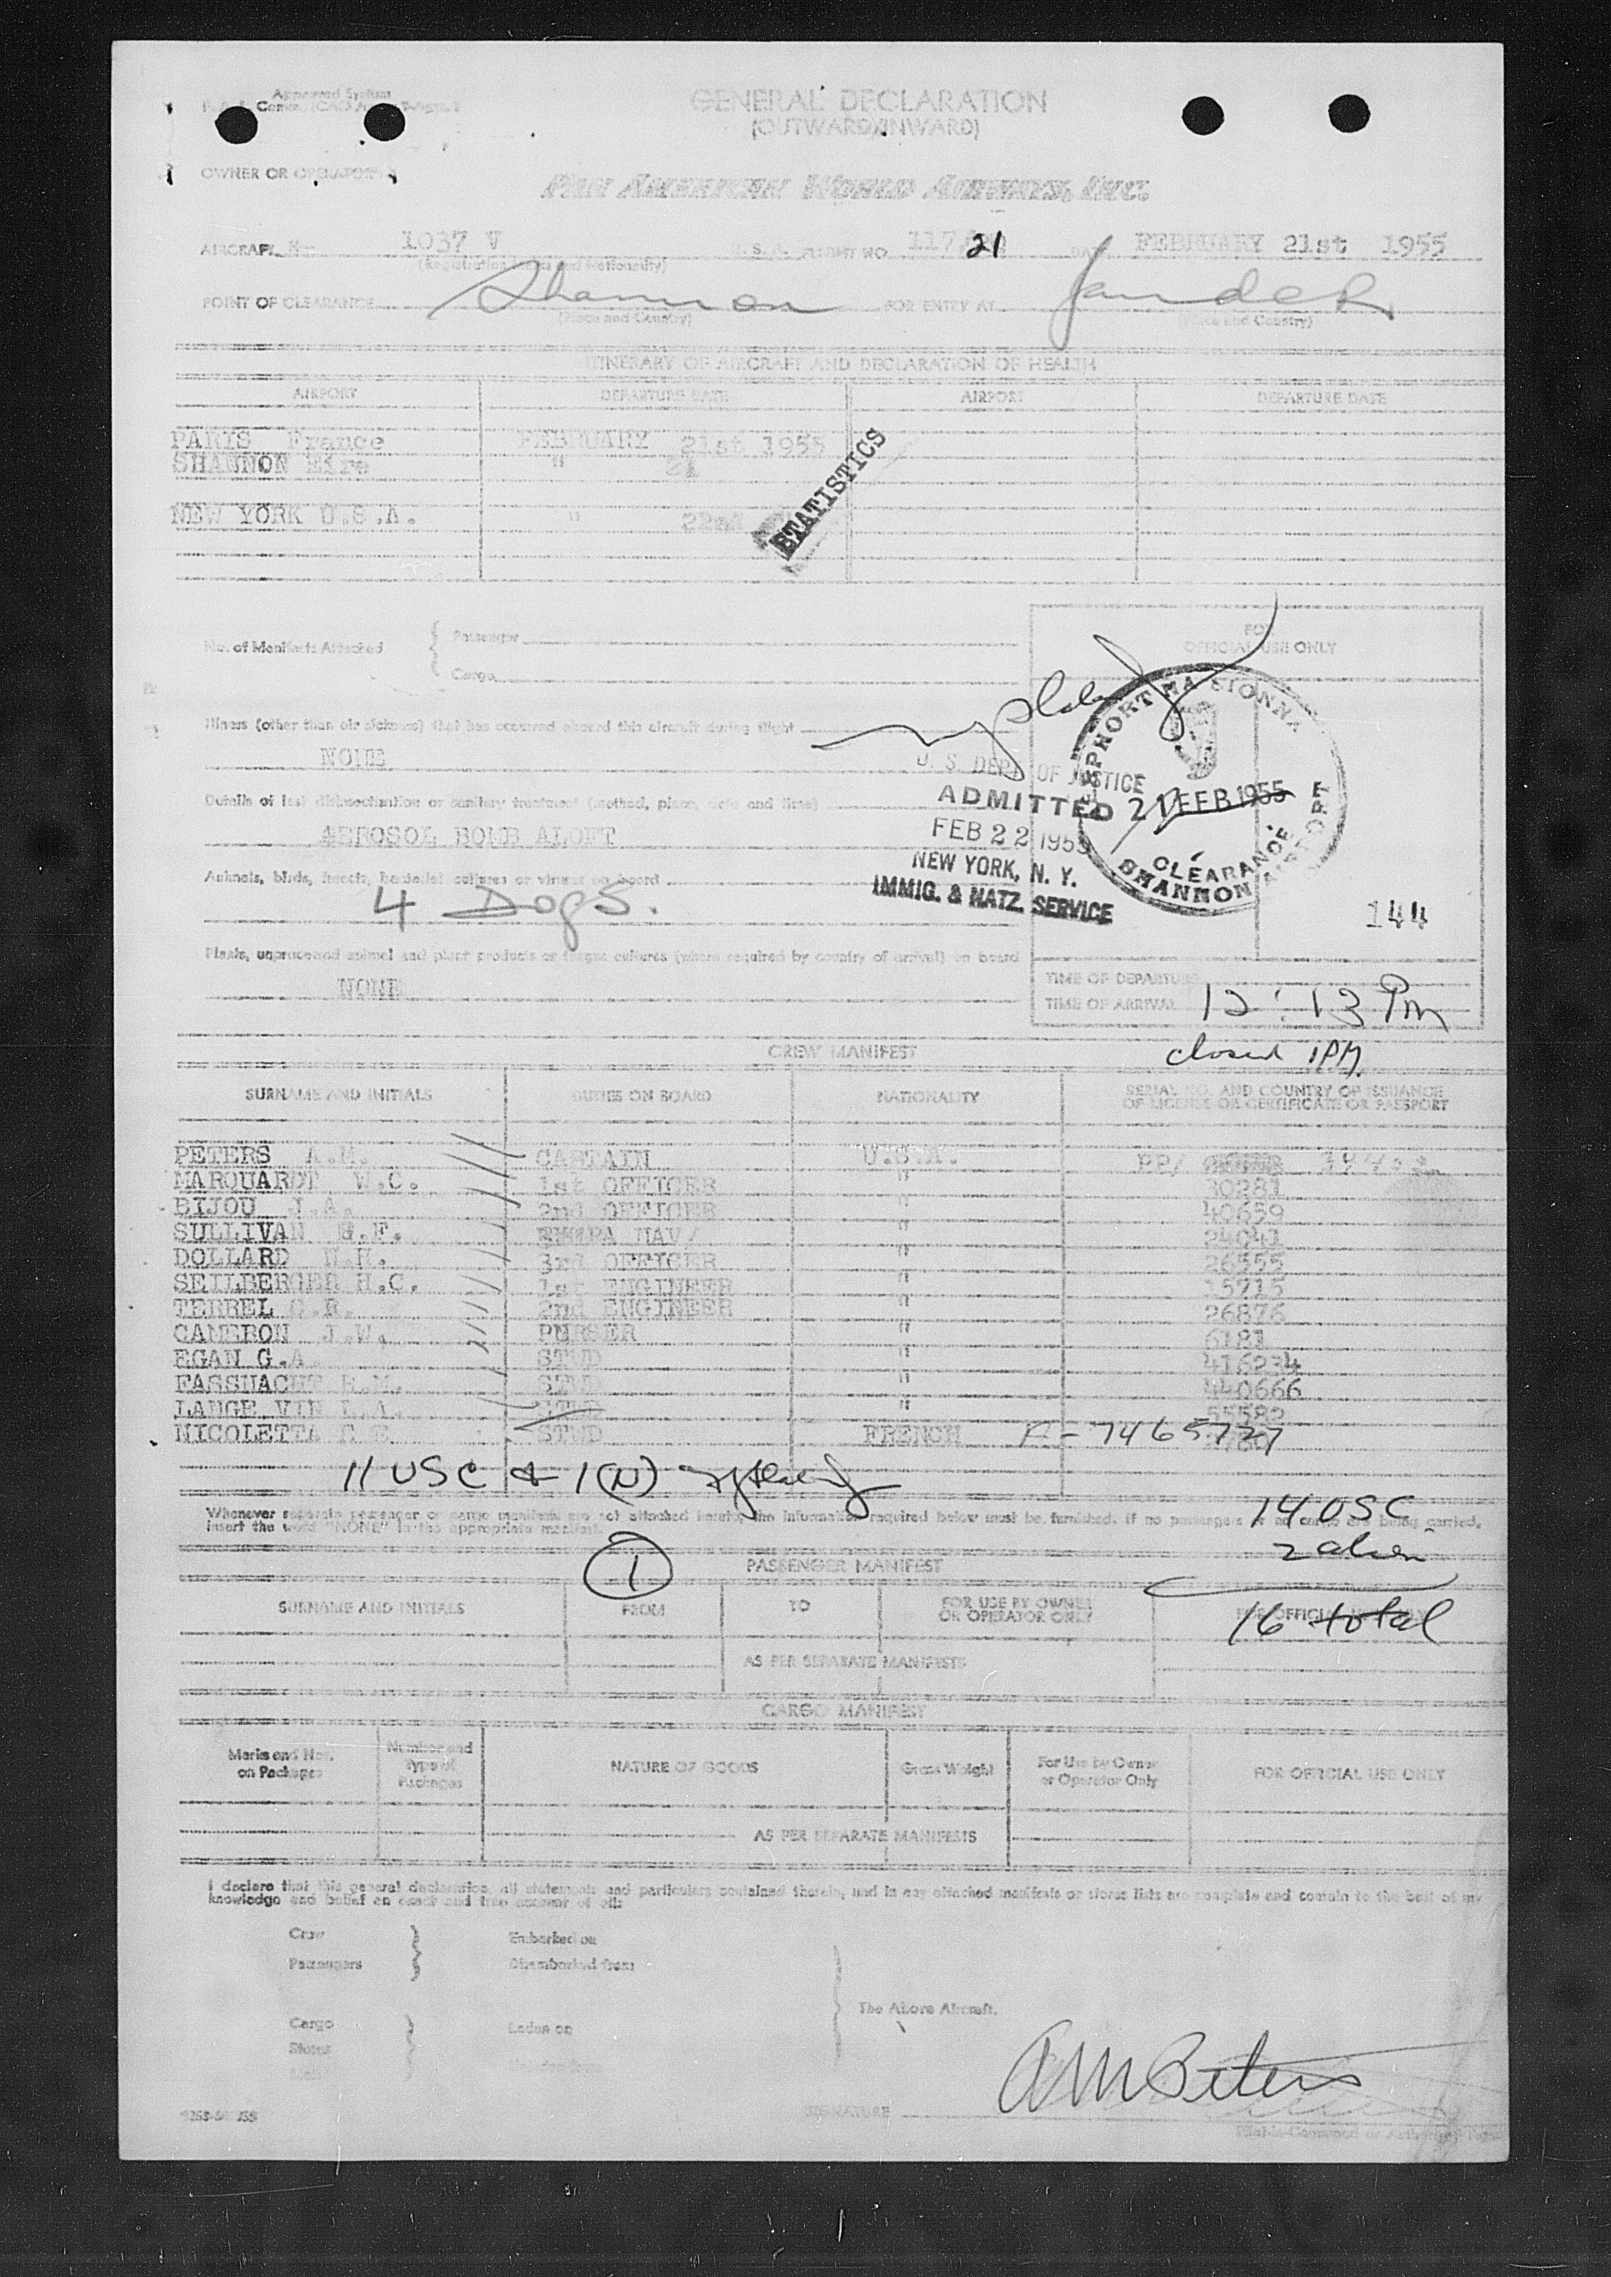 Approved System
GENERAL DECLARATION
(OUTWARD/INWARD)
OWNER OR OPERATOR
PAN AMERICAN WORLD AIRWAYS, INC.
AIRCRAFT N- 1037 V U.S.A. FLIGHT NO. 117 21 DATE FEBRUARY 21st 1955
(Registration Marks and Nationality)
POINT OF CLEARANCE Shannon FOR ENTRY AT Gander
(Place and Country) (Place and Country)
ITINERARY OF AIRCRAFT AND DECLARATION OF HEALTH
AIRPORT DEPARTURE DATE AIRPORT DEPARTURE DATE
PARIS France FEBRUARY 21st 1955
SHANNON Eire " 21
NEW YORK U.S.A. " 22nd
STATISTICS
No. of Manifests Attached
Passenger
Cargo
FOR
OFFICIAL USE ONLY
Illness (other than air sickness) that has occurred aboard this aircraft during flight
NONE
Details of last disinsectization or sanitary treatment (method, place, date and time)
AEROSOL BOMB ALOFT
Animals, birds, insects, bacterial cultures or viruses on board
4 Dogs.
Plants, unprocessed animal and plant products or fungus cultures (where required by country of arrival) on board
NONE
U. S. DEPT. OF JUSTICE
ADMITTED
FEB 22 1955
NEW YORK, N. Y.
IMMIG. & NATZ. SERVICE
21 FEB 1955
CLEARANCE
SHANNON AIRPORT
144
TIME OF DEPARTURE
TIME OF ARRIVAL 12:13 PM
closed 1PM
CREW MANIFEST
SURNAME AND INITIALS DUTIES ON BOARD NATIONALITY SERIAL NO. AND COUNTRY OF ISSUANCE
OF LICENSE OR CERTIFICATE OR PASSPORT
PETERS A.M. CAPTAIN U.S.A. PP/
MARQUARDT W.C. 1st OFFICER " 30281
BIJOU J.A. 2nd OFFICER " 40659
SULLIVAN E.F. NAV/ " 24041
DOLLARD W.H. 3rd OFFICER " 26555
SEILBERGER H.C. 1st ENGINEER " 15715
TERREL C.R. 2nd ENGINEER " 26876
CAMERON J.W. PURSER " 6181
EGAN G.A. STWD " 416234
FASSNACHT H.M. STWD " 440666
LANGE VIE L.A. STWD " 55582
NICOLETTA STWD FRENCH A-7465727
11 USC & 1(N)
Whenever separate passenger or cargo manifests are not attached hereto, the information required below must be furnished. If no passengers or no cargo are being carried,
insert the word "NONE" in the appropriate manifest.
14 USC
2 alien
16 total
1
PASSENGER MANIFEST
SURNAME AND INITIALS FROM TO FOR USE BY OWNER
OR OPERATOR ONLY FOR OFFICIAL USE ONLY
AS PER SEPARATE MANIFESTS
CARGO MANIFEST
Marks and Nos.
on Packages Number and
Type of
Packages NATURE OF GOODS Gross Weight For Use by Owner
or Operator Only FOR OFFICIAL USE ONLY
AS PER SEPARATE MANIFESTS
I declare that this general declaration, all statements and particulars contained therein, and in any attached manifests or stores lists are complete and contain to the best of my
knowledge and belief an exact and true account of all:
Crew Embarked on
Passengers Disembarked from
The Above Aircraft.
Cargo Laden on
Stores
AM Peters
SIGNATURE